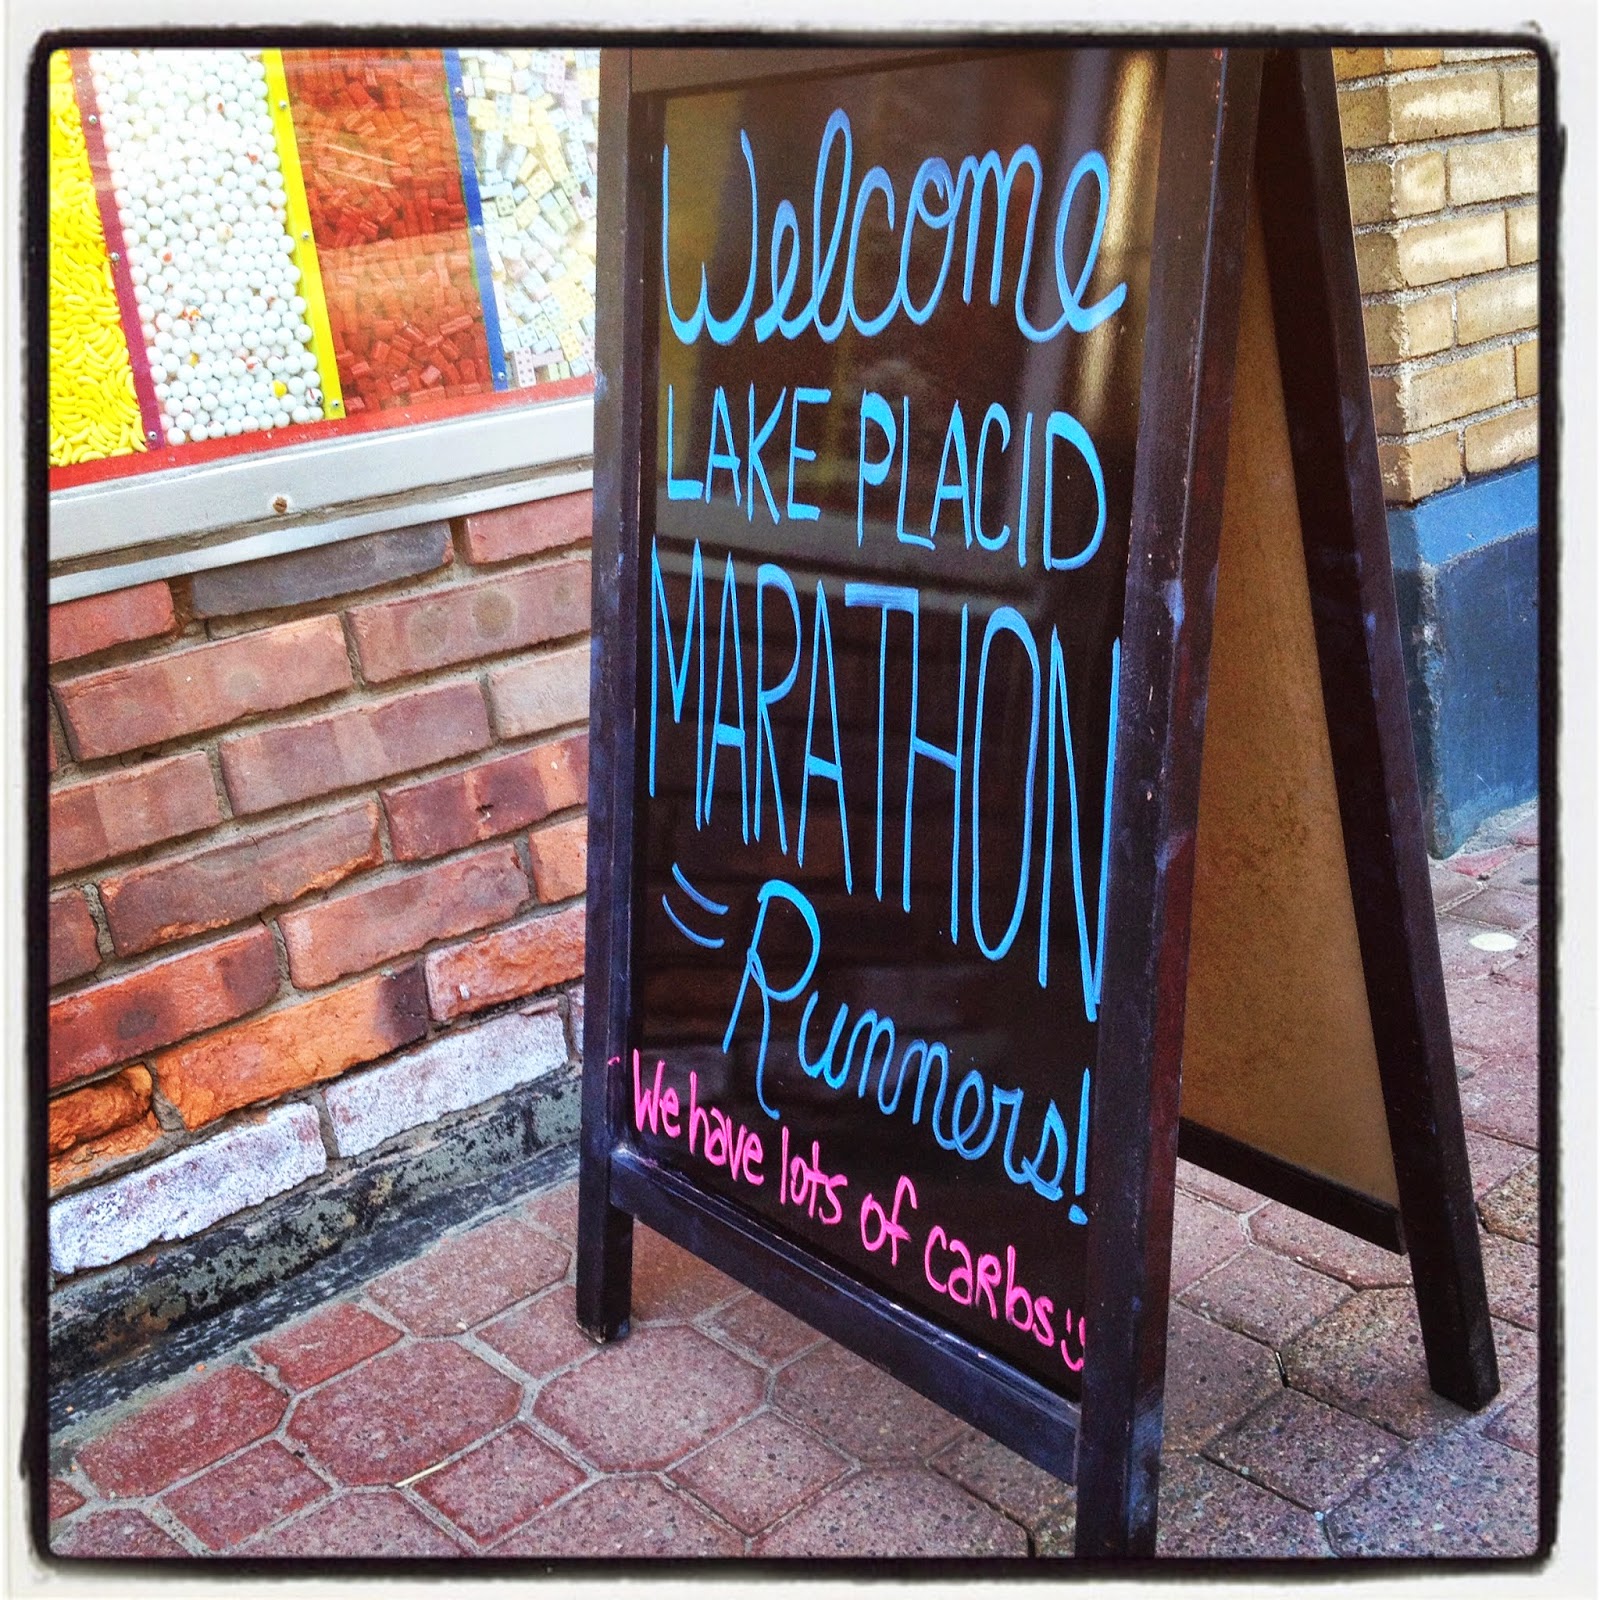 Welcome
LAKE PLACID
MARATHON
Runners!
We have lots of carbs :)